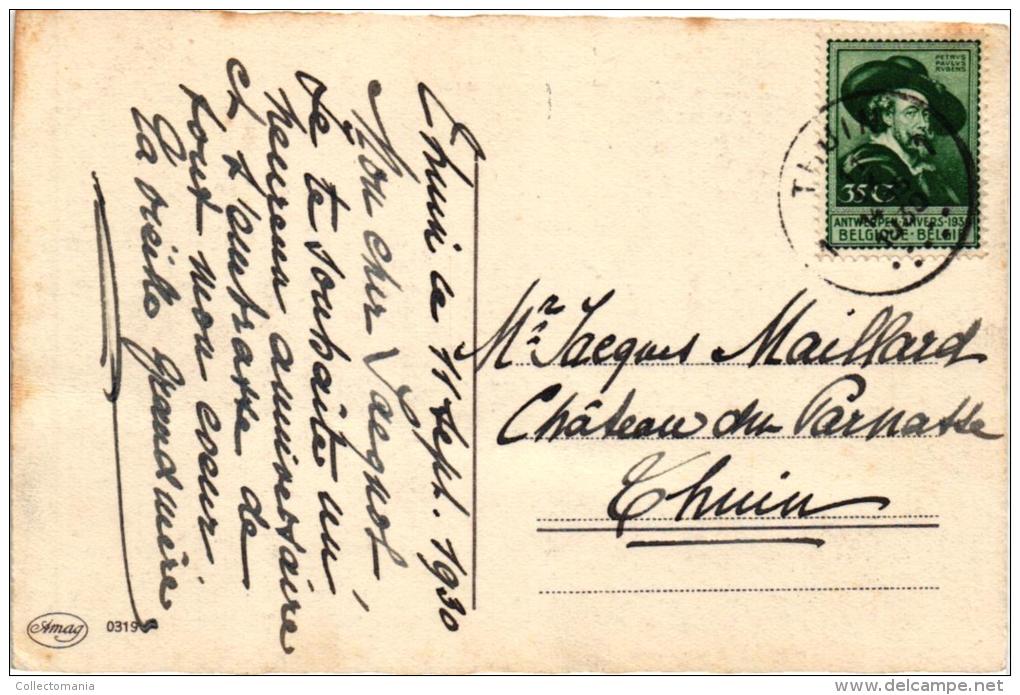 Thuin le 11 Sept. 1930
Mon cher Jacquot
Je te souhaite un
heureux anniversaire
et t'embrasse de
tout mon coeur.
Ta vieille grand'mère
PETRVS
PAVLVS
RVBENS
35 C
ANTWERPEN-ANVERS-1930
BELGIQUE-BELGIË
THUIN
Mr Jacques Maillard
Château du Parnasse
Thuin
Amag
0319
Collectomania
www.delcampe.net